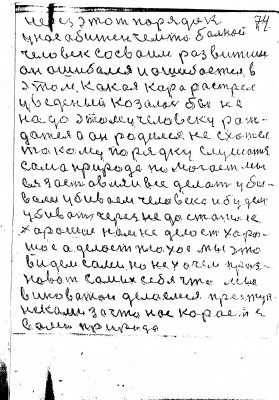 через этот порядок 74.
у нас обижен чем то больной
человек со своим развитием
он ошибался и ошибается, в
этом. Какая кара растрел
уведеный казалось бы не
надо этому человеку рож-
датся а он родился не схотел
такому порядку слушатся
сама природа помогает мы
ея заставляли все делать убы-
вали убиваем человека и будем
убивать через недостатки
хорошие нам не делост хоро-
шое а делост плохое мы это
видем сами, но не хочем приз-
новат самих себя что мы
виноваты делаемся преступ-
никами за что нас карает
сама природа